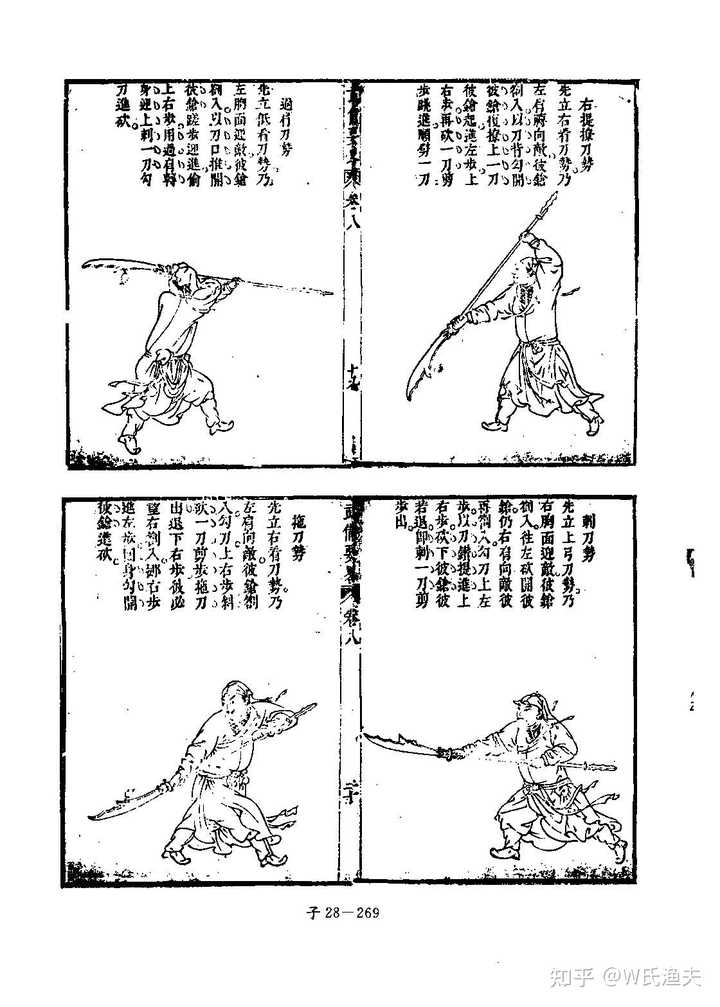 右提撩刀勢
先立右看刀勢乃
左肩膊向敵彼鎗
劄入以刀背勾開
彼鎗復撩上一刀
彼鎗起進左步上
右步再砍一刀剪
步跳進順劈一刀
卷八
十九
過肩刀勢
先立低看刀勢乃
左胸面迎敵彼鎗
劄入以刀口推開
彼鎗蹉步迎進偷
上右步用過肩轉
身迎上刺一刀勾
刀進砍
刺刀勢
先立上弓刀勢乃
右胸面迎敵彼鎗
劄入往左砍開彼
鎗仍右肩向敵彼
再劄入勾刀上左
步以刀鐏提進上
右步砍下彼鎗彼
若退卸刺一刀剪
步出
武備要略 卷八
二十
拖刀勢
先立右看刀勢乃
左肩向敵彼鎗劄
入勾刀上右步斜
砍一刀剪步拖刀
出退下右步彼必
望右劄入挪右步
進左步回身勾開
彼鎗進砍
子 28－269
知乎 @W氏渔夫